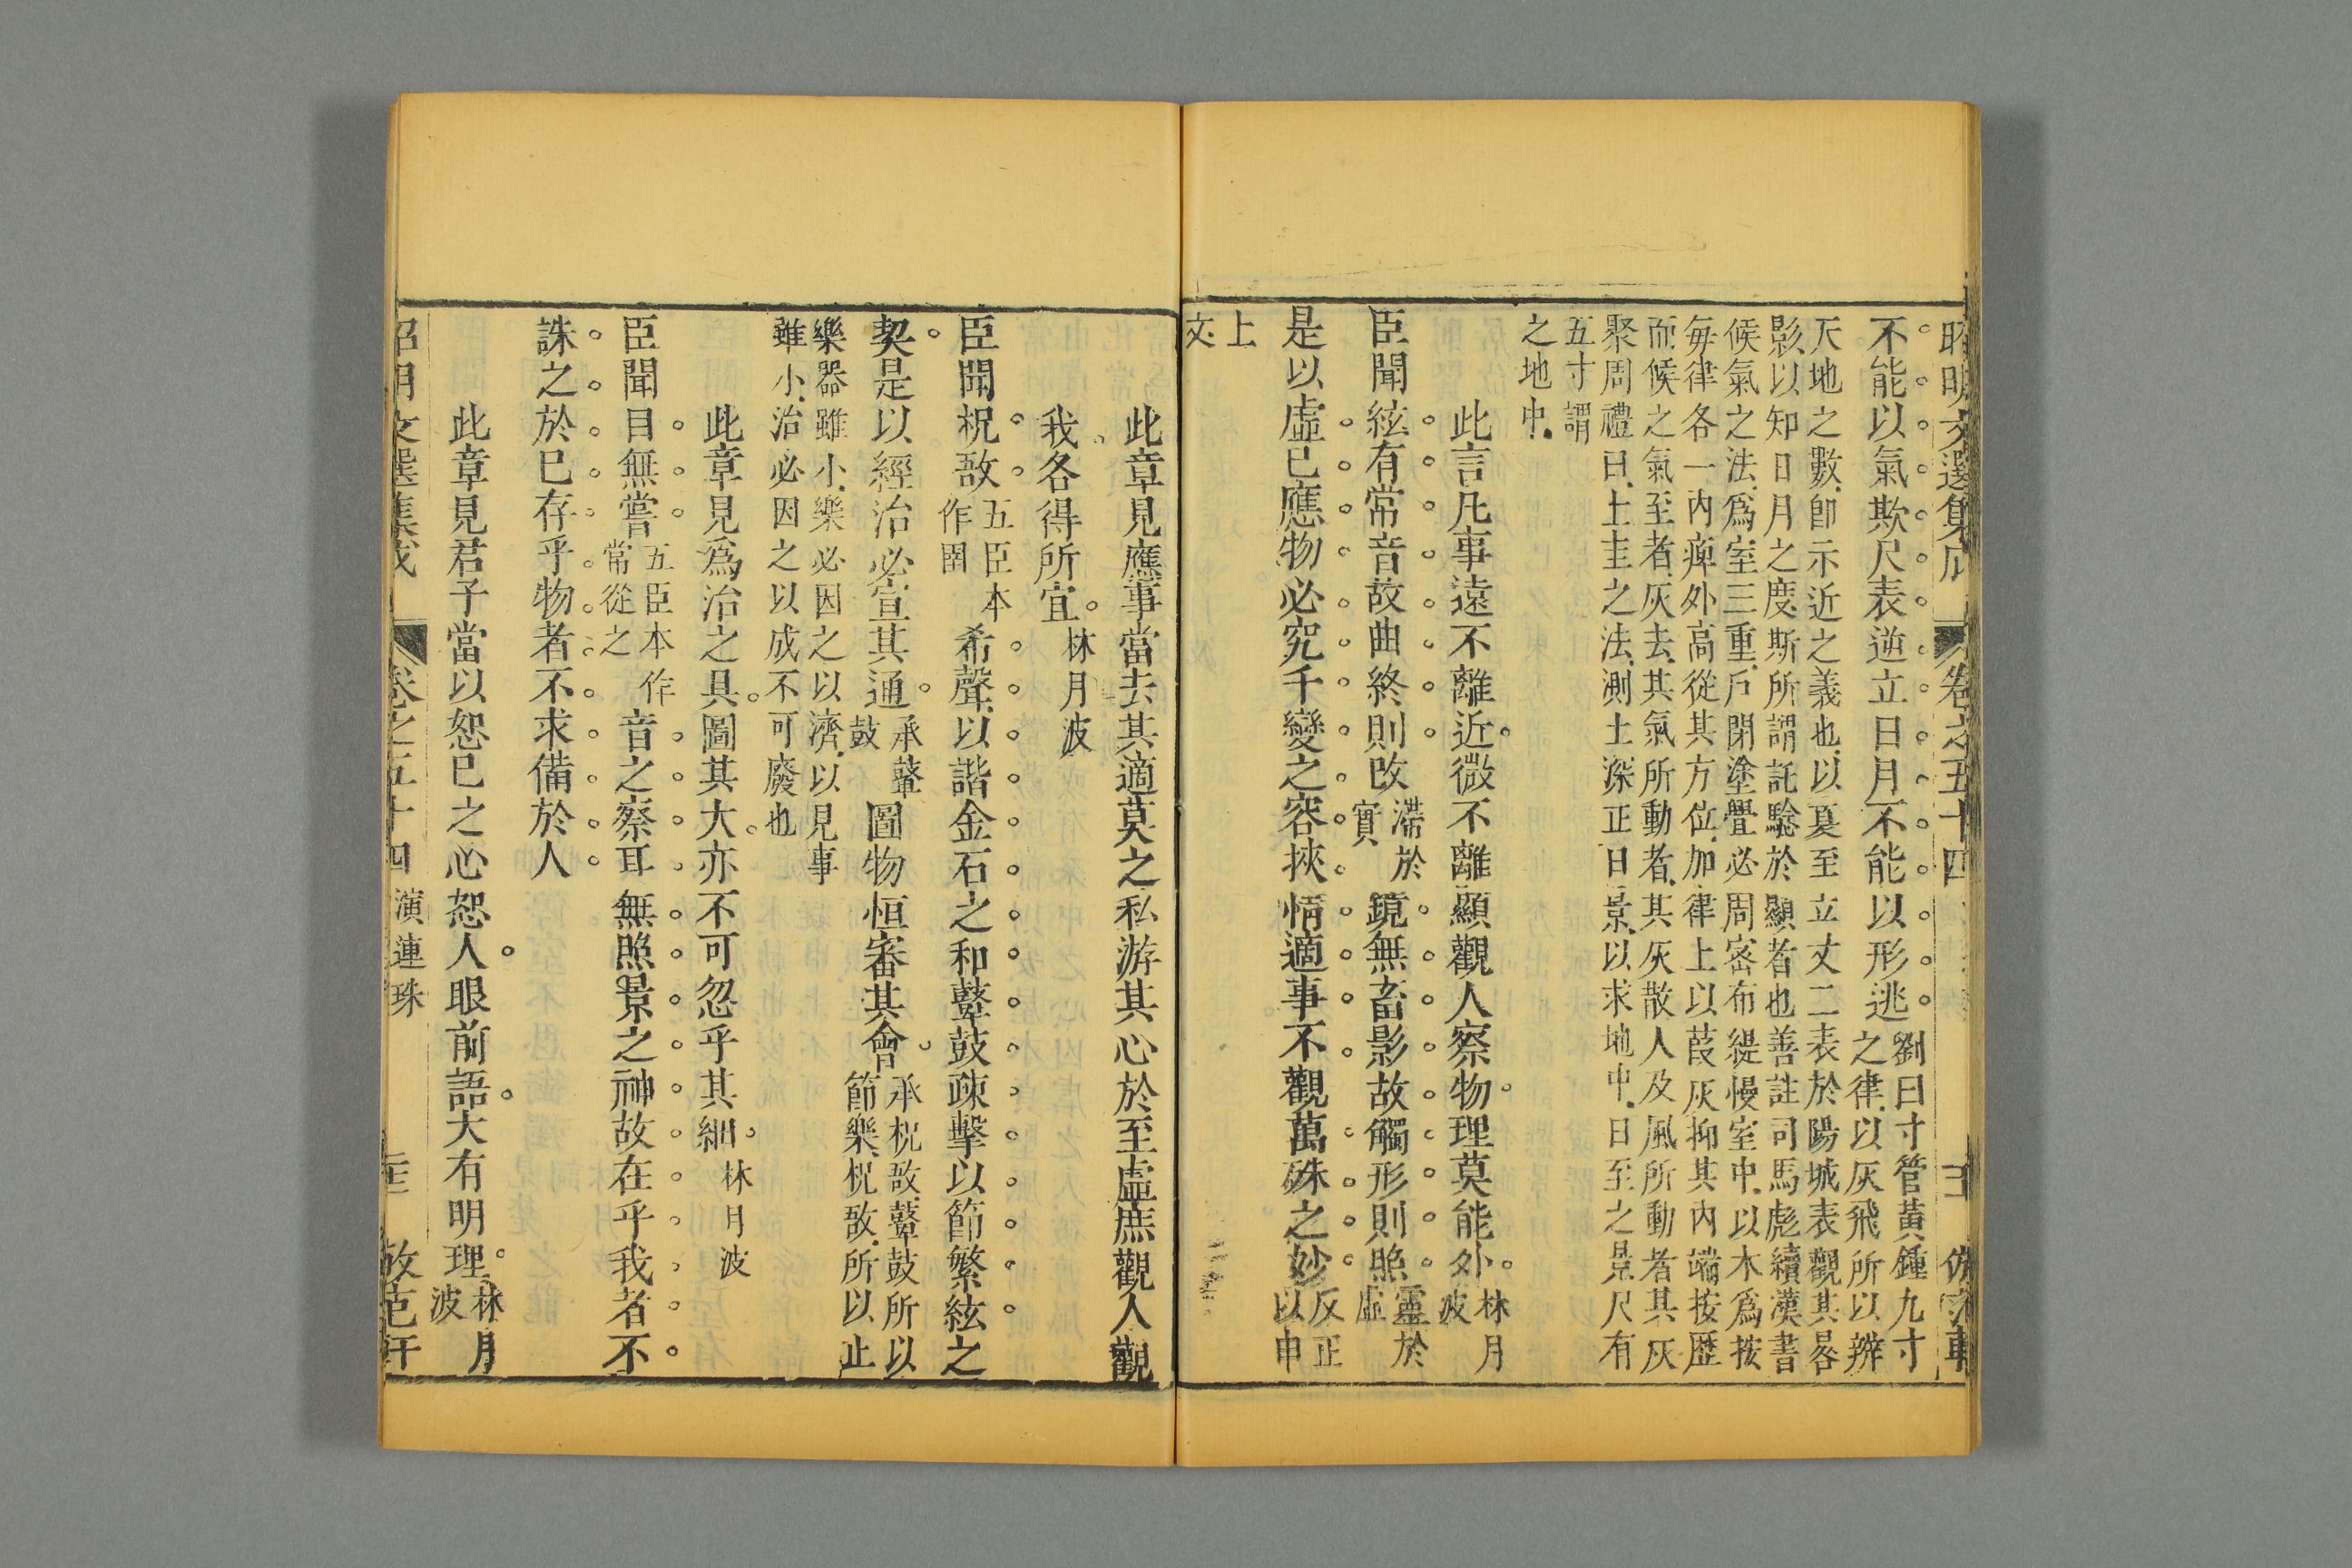 昭明文選集成 卷之五十四
不能以氣欺尺表逆立日月不能以形逃劉曰寸管黃鍾九寸
之律以灰飛所以辨
天地之數卽示近之義也以夏至立丈二表於陽城表觀其晷
影以知日月之度斯所謂託驗於顯者也善註司馬彪續漢書
候氣之法爲室三重戶閉塗釁必周密布緹慢室中以木爲按
每律各一內痺外高從其方位加律上以葭灰抑其內端按歷
而候之氣至者灰去其氣所動者其灰散人及風所動者其灰
聚周禮曰土圭之法測土深正日景以求地中日至之景尺有
五寸謂
之地中
此言凡事遠不離近微不離顯觀人察物理莫能外林月
波
臣聞絃有常音故曲終則改滯於
實鏡無畜影故觸形則照靈於
虛
是以虛已應物必究千變之容挾情適事不觀萬殊之妙反正
以申
上
文
此章見應事當去其適莫之私游其心於至虛庶觀人觀
我各得所宜林月波
臣聞柷敔五臣本
作圄希聲以諧金石之和鼙鼓疎擊以節繁絃之
契是以經治必宣其通承鼙
鼓圖物恒審其會承柷敔鼙鼓所以
節樂柷敔所以止
樂器雖小樂必因之以濟以見事
雖小治必因之以成不可廢也
此章見爲治之具圖其大亦不可忽乎其細林月波
臣聞目無嘗五臣本作
常從之音之察耳無照景之神故在乎我者不
誅之於已存乎物者不求備於人
此章見君子當以恕已之心恕人眼前語大有明理林月
波
昭明文選集成 卷之五十四 演連珠 倣范軒